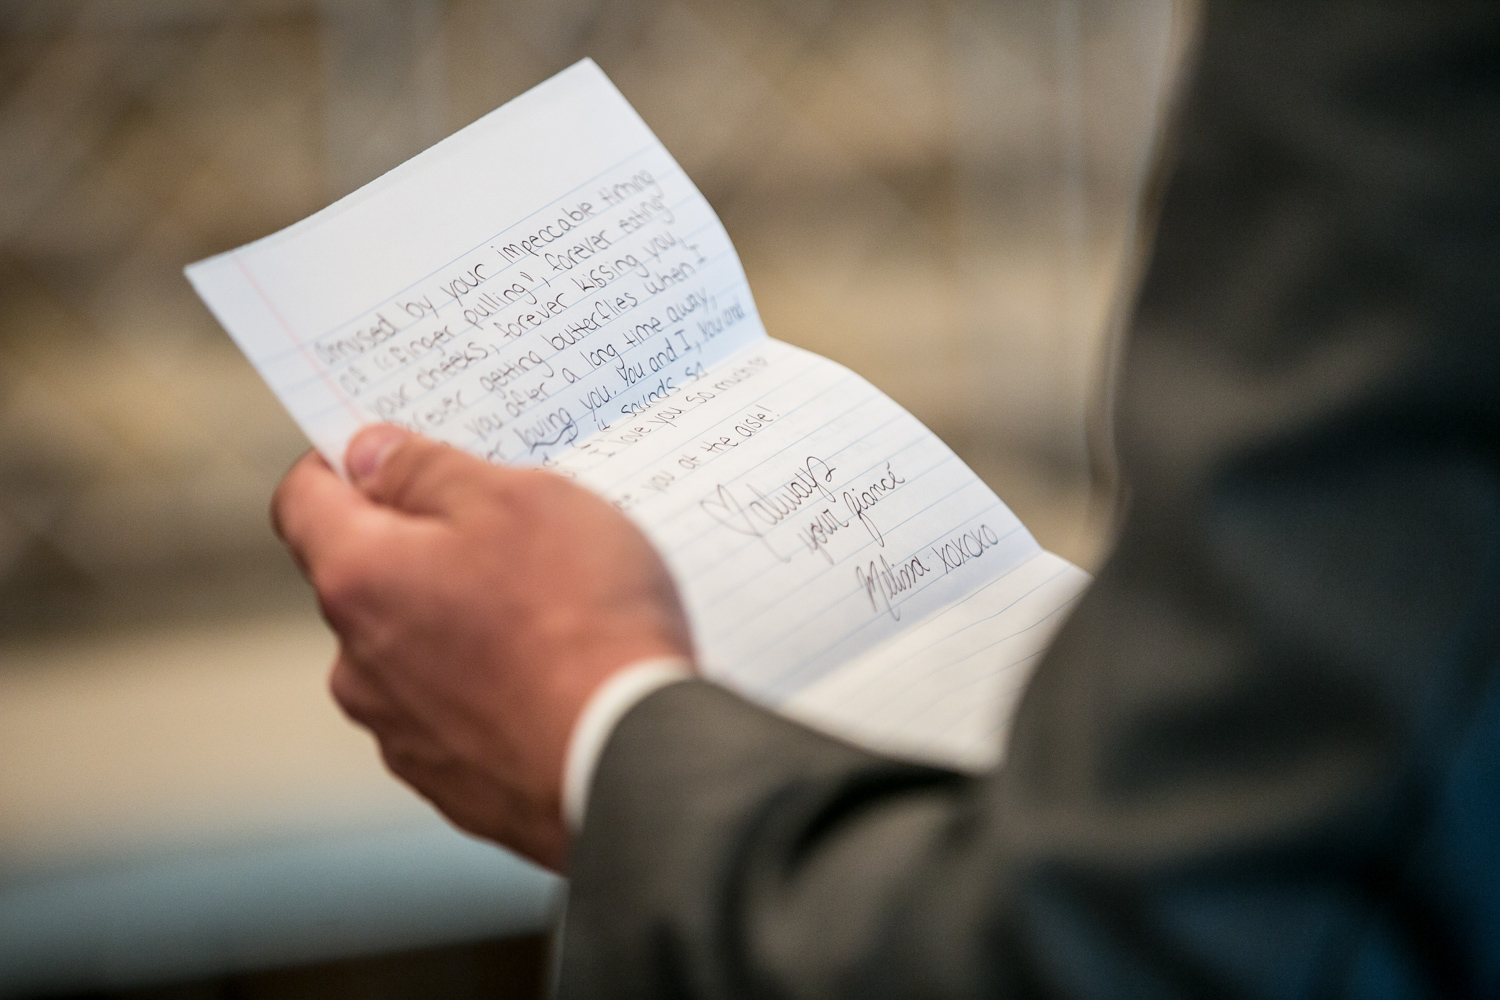 amused by your impeccable timing
of "finger pulling", forever eating
your cheeks, forever kissing you,
forever getting butterflies when I
you after a long time away,
loving you. You and I, you and
it sounds so
I love you so much ♡
you at the aisle!
♡ always
your fiancé
Melissa xoxoxo